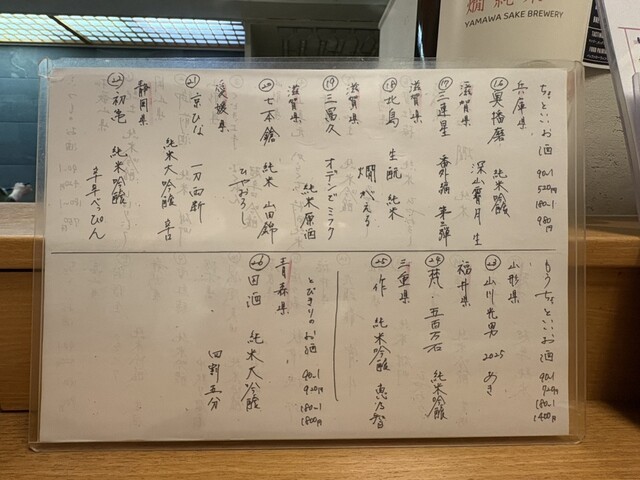 燗純米
YAMAWA SAKE BREWERY
ちょといいお酒 90-1 520円 180-1 980円
兵庫県
⑯ 奥播磨 純米吟醸
深山霽月 生
滋賀県
⑰ 三連星 番外編 第三弾
滋賀県
⑱ 北島 生酛 純米
燗がえる
滋賀県
⑲ 三冨久 オデンでミツク
純米原酒
滋賀県
⑳ 七本鎗 純米 山田錦
ひやおろし
愛媛県
㉑ 京ひな 一刀両断
純米大吟醸 辛口
静岡県
㉒ 初亀 純米吟醸
辛辛べっぴん
もうちょといいお酒 90-1 720円 180-1 1400円
山形県
㉓ 山川光男 2025 あき
福井県
㉔ 梵・五百万石 純米吟醸
三重県
㉕ 作 純米吟醸 恵乃智
とびきりのお酒 90-1 920円 180-1 1800円
青森県
㉖ 田酒 純米大吟醸
四割五分